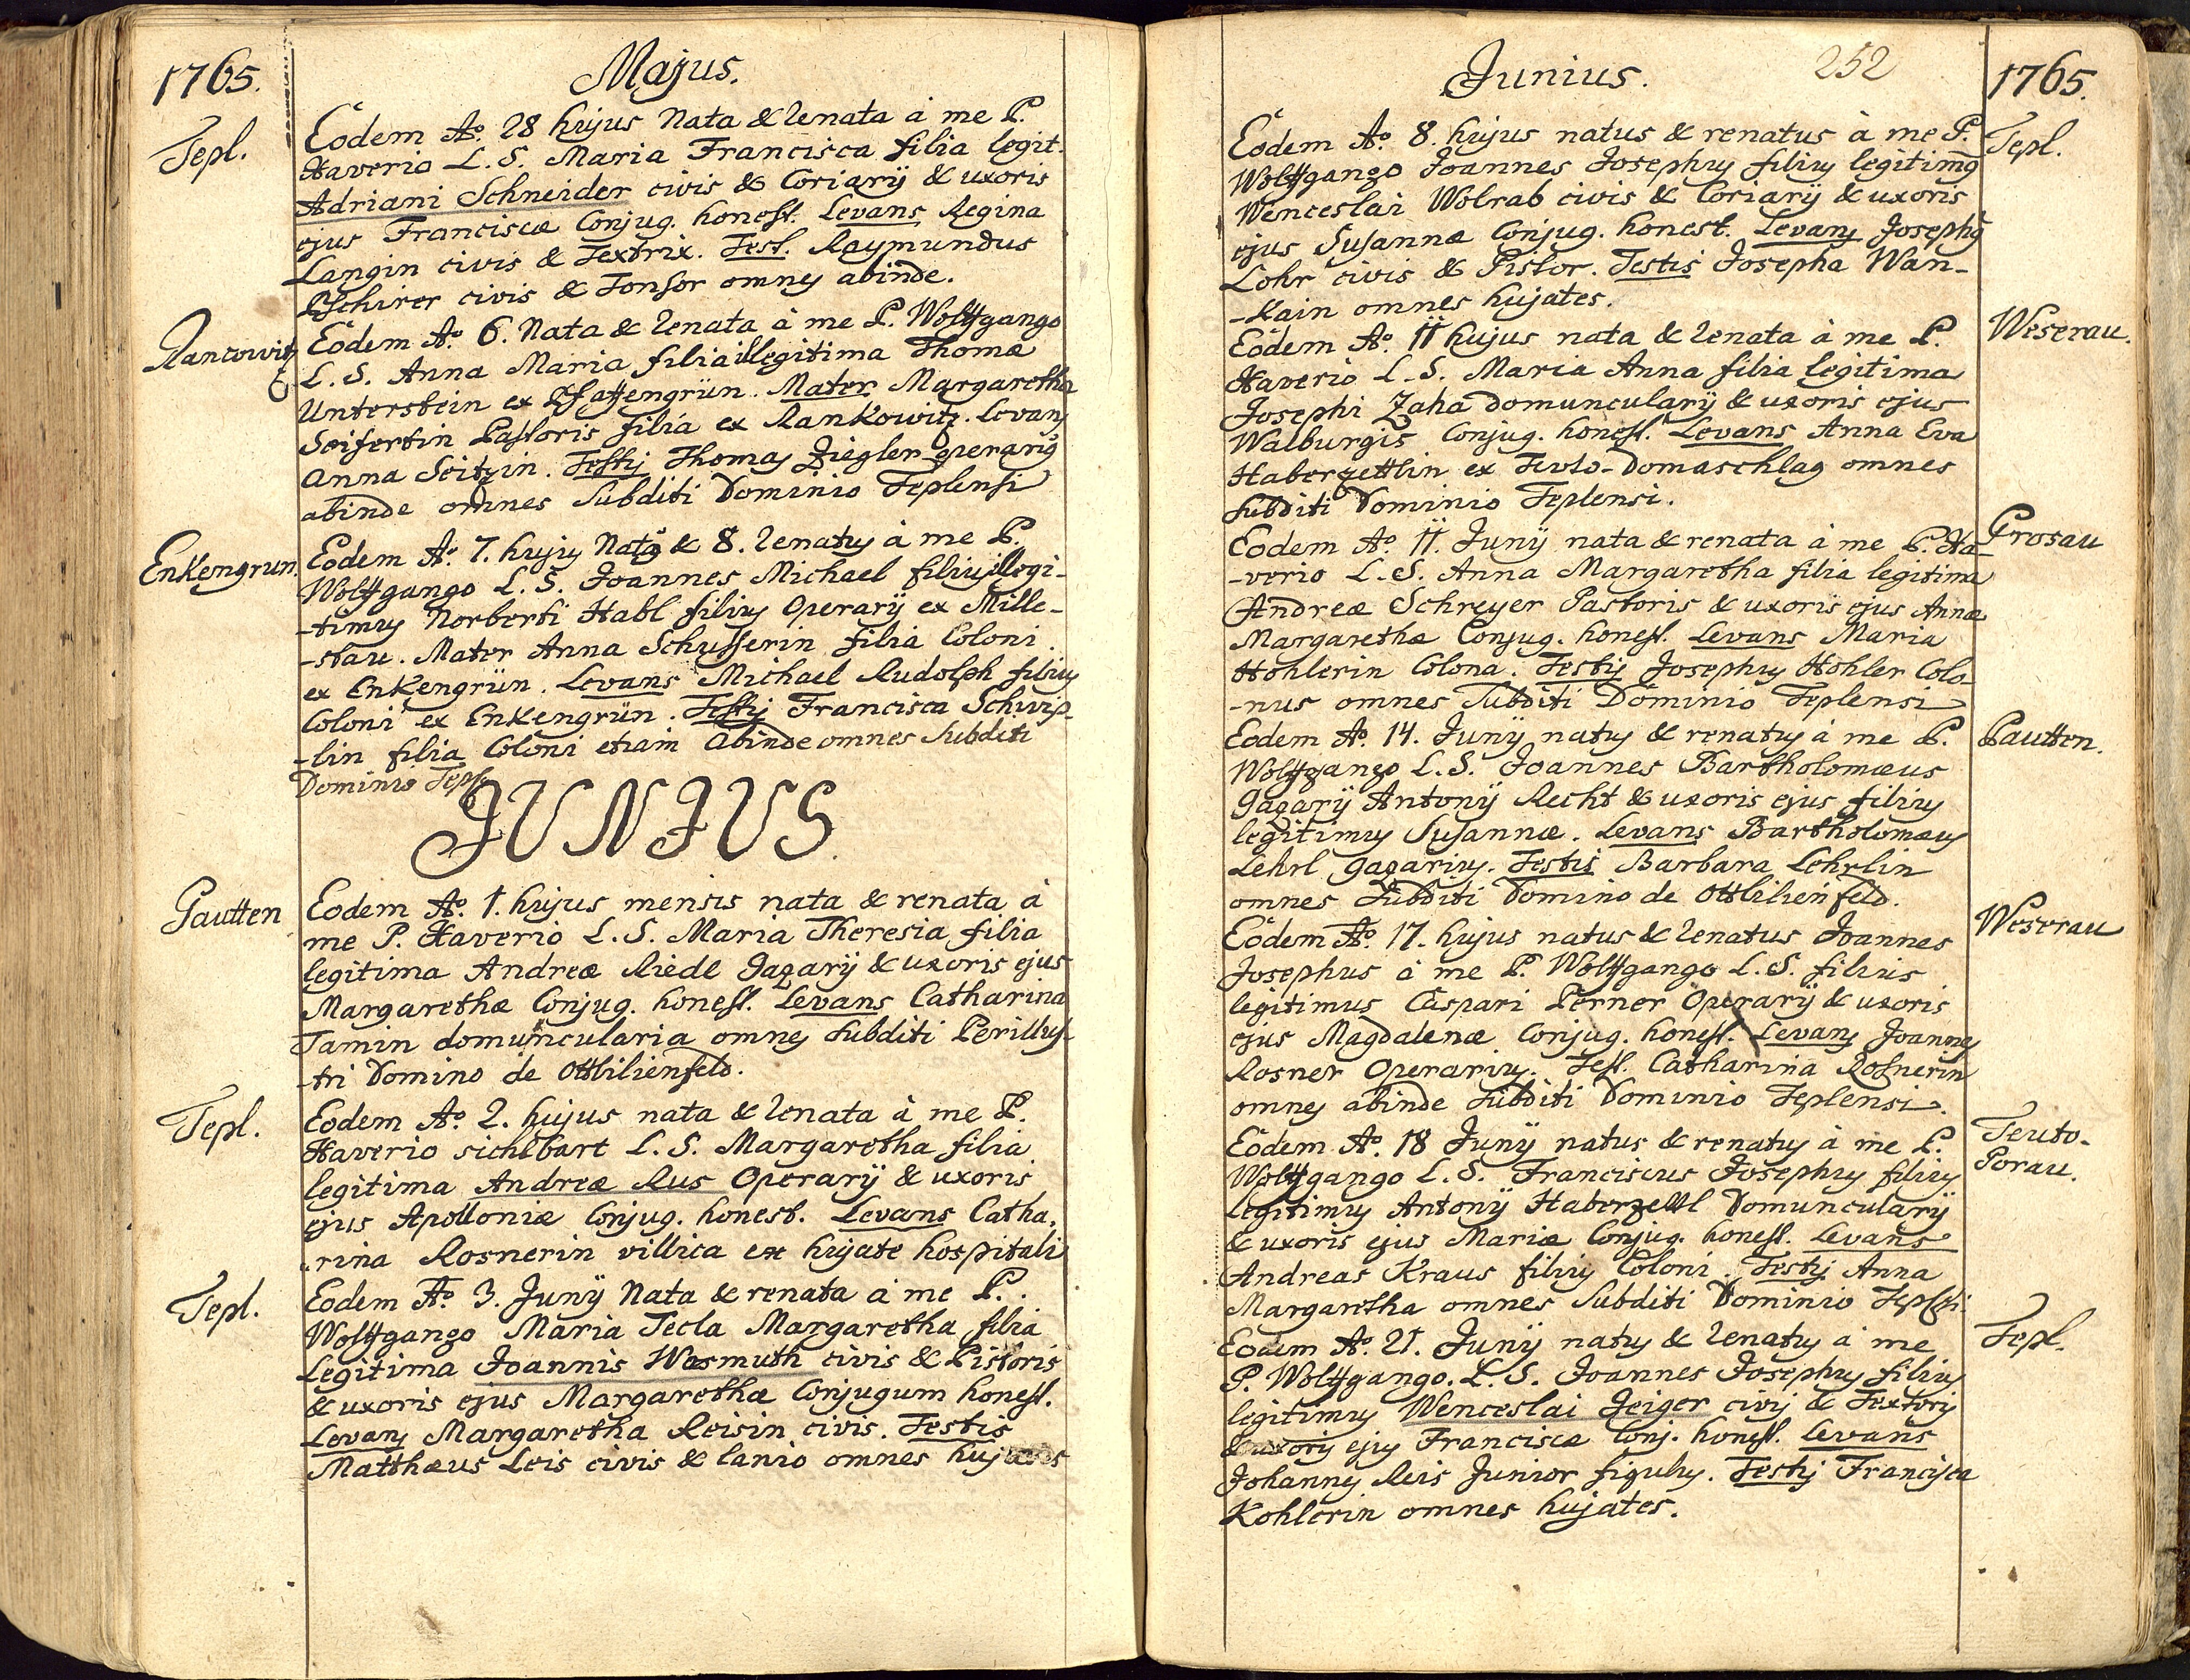 1765.
Majus.
Tepl.
Eodem Ao. 28 hujus Nata & renata à me P.
Xaverio L. S. Maria Francisca filia legit.
Adriani Schneider civis & Coriarÿ & uxoris
ejus Franciscæ Conjug. honest. Levans Regina
Langin civis & Textrix. Test. Raymundus
Pschirer civis & Tonsor omnes abinde.
Rancowitz
Eodem Ao. 6. Nata & renata à me P. Wolffgango
L. S. Anna Maria filia illegitima Thomæ
Unterstein ex Pfaffengrün. Mater Margaretha
Seifertin Pastoris filia ex Rankowitz. Levans
Anna Seitzin. Testis Thomas Ziegler operarius
abinde omnes Subditi Dominio Teplensi
Enkengrun.
Eodem Ao. 7. hujus Natus & 8. renatus à me P.
Wolffgango L. S. Joannes Michael filius illegi-
-timus Norberti Habl filius Operarÿ ex Mille-
-stau. Mater Anna Schusserin filia Coloni
ex Enkengrün. Levans Michael Rudolph filius
Coloni ex Enkengrün. Testis Francisca Schwip-
-lin filia Coloni etiam abinde omnes Subditi
Dominio Tepl.
JUNIUS.
Gautten
Eodem Ao. 1. hujus mensis nata & renata à
me P. Xaverio L. S. Maria Theresia filia
legitima Andreæ Riedl Gazarÿ & uxoris ejus
Margarethæ Conjug. honest. Levans Catharina
Tamin domuncularia omnes Subditi Perillus-
-tri Domino de Ottlilienfeld.
Tepl.
Eodem Ao. 2. hujus nata & renata à me P.
Xaverio sichlbart L. S. Margaretha filia
legitima Andreæ Rus Operarÿ & uxoris
ejus Apolloniæ Conjug. honest. Levans Catha-
-rina Rosnerin villica ex hujate hospitali
Tepl.
Eodem Ao. 3. Junÿ Nata & renata à me P.
Wolffgango Maria Tecla Margaretha filia
Legitima Joannis Wasmuth civis & Pistoris
& uxoris ejus Margarethæ Conjugum honest.
Levans Margaretha Reisin civis. Testis
Matthæus Leis civis & lanio omnes hujates
Junius.
252
1765.
Eodem Ao. 8. hujus natus & renatus à me P.
Tepl.
Wolffgango Joannes Josephus filius legitimus
Wenceslai Wolrab civis & Coriarÿ & uxoris
ejus Susannæ Conjug. honest. Levans Josephus
Lohr civis & Pistor. Testis Josepha Wan-
-kain omnes hujates.
Weserau.
Eodem Ao. 11 hujus nata & renata à me P.
Xaverio L. S. Maria Anna filia legitima
Josephi Zaha domuncularÿ & uxoris ejus
Walburgis Conjug. honest. Levans Anna Eva
Haberzettlin ex Teuto-Domaschlag omnes
Subditi Dominio Teplensi.
Grosau
Eodem Ao. 11. Junÿ nata & renata à me P. Xa-
-verio L. S. Anna Margaretha filia legitima
Andreæ Schreyer Pastoris & uxoris ejus Annæ
Margarethæ Conjug. honest. Levans Maria
Hohlerin Colona. Testis Josephus Hohler Colo-
-nus omnes Subditi Dominio Teplensi
Pautten.
Eodem Ao. 14. Junÿ natus & renatus à me P.
Wolffgango L. S. Joannes Bartholomæus
Gazarÿ Antonÿ Recht & uxoris ejus filius
legitimus Susannæ. Levans Bartholomæus
Lehrl gazarius. Testis Barbara Lehrlin
omnes Subditi Domino de Ottlilienfeld.
Weserau
Eodem Ao. 17. hujus natus & renatus Joannes
Josephus à me P. Wolffgango L. S. filius
legitimus Caspari Perner Operarÿ & uxoris
ejus Magdalenæ Conjug. honest. Levans Joannes
Rosner Operarius. Test. Catharina Rosnerin
omnes abinde Subditi Dominio Teplensi.
Teuto-
Porau.
Eodem Ao. 18 Junÿ natus & renatus à me P.
Wolffgango L. S. Franciscus Josephus filius
Legitimus Antonÿ Haberzettl Domuncularÿ
& uxoris ejus Mariæ Conjug. honest. Levans
Andreas Kraus filius Coloni. Testis Anna
Margaretha omnes Subditi Dominio Teplsi.
Tepl.
Eodem Ao. 21. Junÿ natus & renatus à me
P. Wolffgango. L. S. Joannes Josephus filius
legitimus Wenceslai Zeiger civis & Textoris
& uxoris ejus Franciscæ Conj. honest. Levans
Johannes Reis Junior figulus. Testis Francisca
Kohlerin omnes hujates.